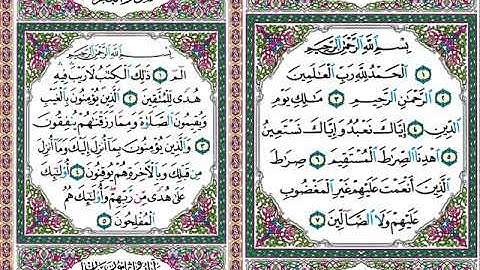 بِسْمِ اللَّهِ الرَّحْمَٰنِ الرَّحِيمِ
الْحَمْدُ لِلَّهِ رَبِّ الْعَالَمِينَ
٢ الرَّحْمَٰنِ الرَّحِيمِ ٣ مَالِكِ يَوْمِ
الدِّينِ ٤ إِيَّاكَ نَعْبُدُ وَإِيَّاكَ نَسْتَعِينُ
٥ اهْدِنَا الصِّرَاطَ الْمُسْتَقِيمَ ٦ صِرَاطَ
الَّذِينَ أَنْعَمْتَ عَلَيْهِمْ غَيْرِ الْمَغْضُوبِ
عَلَيْهِمْ وَلَا الضَّالِّينَ ٧
بِسْمِ اللَّهِ الرَّحْمَٰنِ الرَّحِيمِ
الم ١ ذَٰلِكَ الْكِتَابُ لَا رَيْبَ فِيهِ
هُدًى لِلْمُتَّقِينَ ٢ الَّذِينَ يُؤْمِنُونَ بِالْغَيْبِ
وَيُقِيمُونَ الصَّلَاةَ وَمِمَّا رَزَقْنَاهُمْ يُنْفِقُونَ
٣ وَالَّذِينَ يُؤْمِنُونَ بِمَا أُنْزِلَ إِلَيْكَ وَمَا أُنْزِلَ
مِنْ قَبْلِكَ وَبِالْآخِرَةِ هُمْ يُوقِنُونَ ٤ أُولَٰئِكَ
عَلَىٰ هُدًى مِنْ رَبِّهِمْ وَأُولَٰئِكَ هُمُ
الْمُفْلِحُونَ ٥